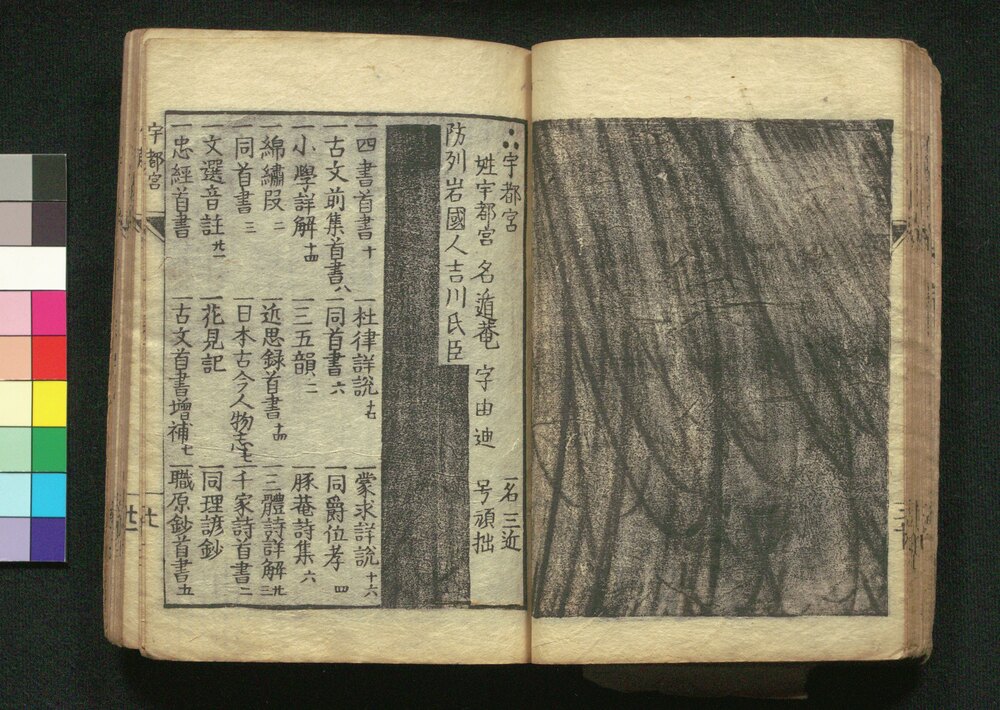 宇都宮
姓宇都宮 名遁菴 字由迪 一名三近 号頑拙
防列岩國人吉川氏臣
一四書首書十 一杜律詳説 一蒙求詳説十六
一古文前集首書八 一同首書六 一同爵位考四
一小學詳解十四 一三五韻二 一豚菴詩集六
一綿繡段二 一近思録首書十四 一三體詩詳解
一同首書三 一日本古今人物志七 一千家詩首書二
一文選音註廿一 一花見記 一同理諺鈔
一忠經首書 一古文首書增補七 一職原鈔首書五
宇都宮